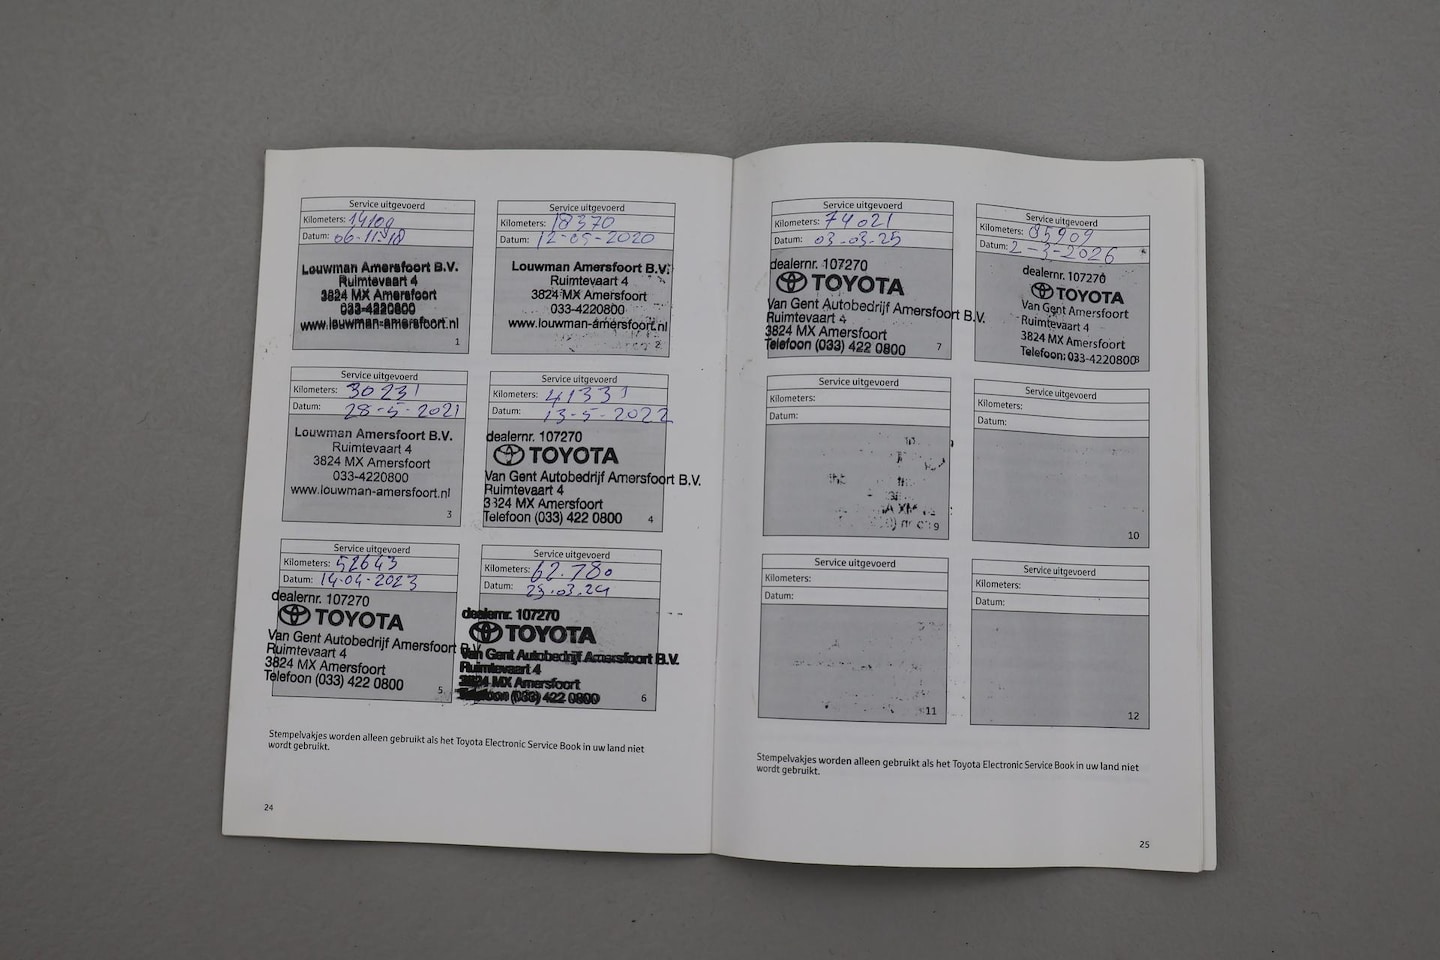 Service uitgevoerd
Kilometers: 14108
Datum: 06-11-18
Louwman Amersfoort B.V.
Ruimtevaart 4
3824 MX Amersfoort
033-4220800
www.louwman-amersfoort.nl
1
Service uitgevoerd
Kilometers: 18370
Datum: 12-05-2020
Louwman Amersfoort B.V.
Ruimtevaart 4
3824 MX Amersfoort
033-4220800
www.louwman-amersfoort.nl
2
Service uitgevoerd
Kilometers: 30231
Datum: 28-5-2021
Louwman Amersfoort B.V.
Ruimtevaart 4
3824 MX Amersfoort
033-4220800
www.louwman-amersfoort.nl
3
Service uitgevoerd
Kilometers: 41331
Datum: 13-5-2022
dealernr. 107270
TOYOTA
Van Gent Autobedrijf Amersfoort B.V.
Ruimtevaart 4
3824 MX Amersfoort
Telefoon (033) 422 0800
4
Service uitgevoerd
Kilometers: 52643
Datum: 14-04-2023
dealernr. 107270
TOYOTA
Van Gent Autobedrijf Amersfoort B.V.
Ruimtevaart 4
3824 MX Amersfoort
Telefoon (033) 422 0800
5
Service uitgevoerd
Kilometers: 62.780
Datum: 29.03.24
dealernr. 107270
TOYOTA
Van Gent Autobedrijf Amersfoort B.V.
Ruimtevaart 4
3824 MX Amersfoort
Telefoon (033) 422 0800
6
Stempelvakjes worden alleen gebruikt als het Toyota Electronic Service Book in uw land niet
wordt gebruikt.
24
Service uitgevoerd
Kilometers: 74021
Datum: 03-03-25
dealernr. 107270
TOYOTA
Van Gent Autobedrijf Amersfoort B.V.
Ruimtevaart 4
3824 MX Amersfoort
Telefoon (033) 422 0800
7
Service uitgevoerd
Kilometers: 85909
Datum: 2-3-2026
dealernr. 107270
TOYOTA
Van Gent Amersfoort
Ruimtevaart 4
3824 MX Amersfoort
Telefoon: 033-4220800
8
Service uitgevoerd
Kilometers:
Datum:
9
Service uitgevoerd
Kilometers:
Datum:
10
Service uitgevoerd
Kilometers:
Datum:
11
Service uitgevoerd
Kilometers:
Datum:
12
Stempelvakjes worden alleen gebruikt als het Toyota Electronic Service Book in uw land niet
wordt gebruikt.
25